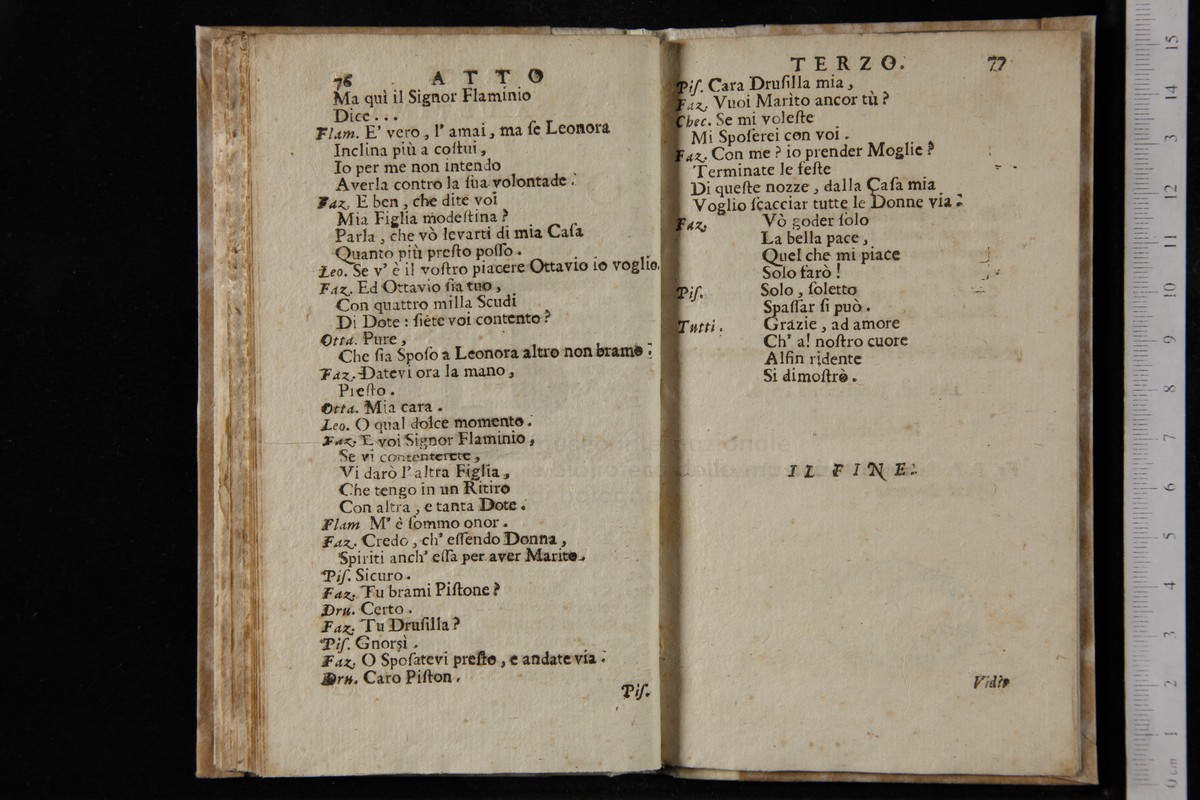 76 ATTO
Ma quì il Signor Flaminio
Dice...
Flam. E' vero, l' amai, ma ſe Leonora
Inclina più a coſtui,
Io per me non intendo
Averla contro la ſua volontade.
Faz. E ben, che dite voi
Mia Figlia modeſtina?
Parla, che vò levarti di mia Caſa
Quanto più preſto poſſo.
Leo. Se v' è il voſtro piacere Ottavio io voglio.
Faz. Ed Ottavio ſia tuo,
Con quattro milla Scudi
Di Dote: ſiete voi contento?
Otta. Pure,
Che ſia Spoſo a Leonora altro non bramo:
Faz. Datevi ora la mano,
Preſto.
Otta. Mia cara.
Leo. O qual dolce momento.
Faz. E voi Signor Flaminio,
Se vi contenterete,
Vi darò l' altra Figlia,
Che tengo in un Ritiro
Con altra, e tanta Dote.
Flam M' è ſommo onor.
Faz. Credo, ch' eſſendo Donna,
Spiriti anch' eſſa per aver Marito.
Piſ. Sicuro.
Faz. Tu brami Piſtone?
Dru. Certo.
Faz. Tu Druſilla?
Piſ. Gnorsì.
Faz. O Spoſatevi preſto, e andate via.
Dru. Caro Piſton.
Piſ.
TERZO. 77
Piſ. Cara Druſilla mia,
Faz. Vuoi Marito ancor tù?
Chec. Se mi voleſte
Mi Spoſerei con voi.
Faz. Con me? io prender Moglie?
Terminate le feſte
Di queſte nozze, dalla Caſa mia
Voglio ſcacciar tutte le Donne via.
Faz. Vò goder ſolo
La bella pace,
Quel che mi piace
Solo farò!
Piſ. Solo, ſoletto
Spaſſar ſi può.
Tutti. Grazie, ad amore
Ch' a! noſtro cuore
Alfin ridente
Si dimoſtrò.
IL FINE.
Vidit